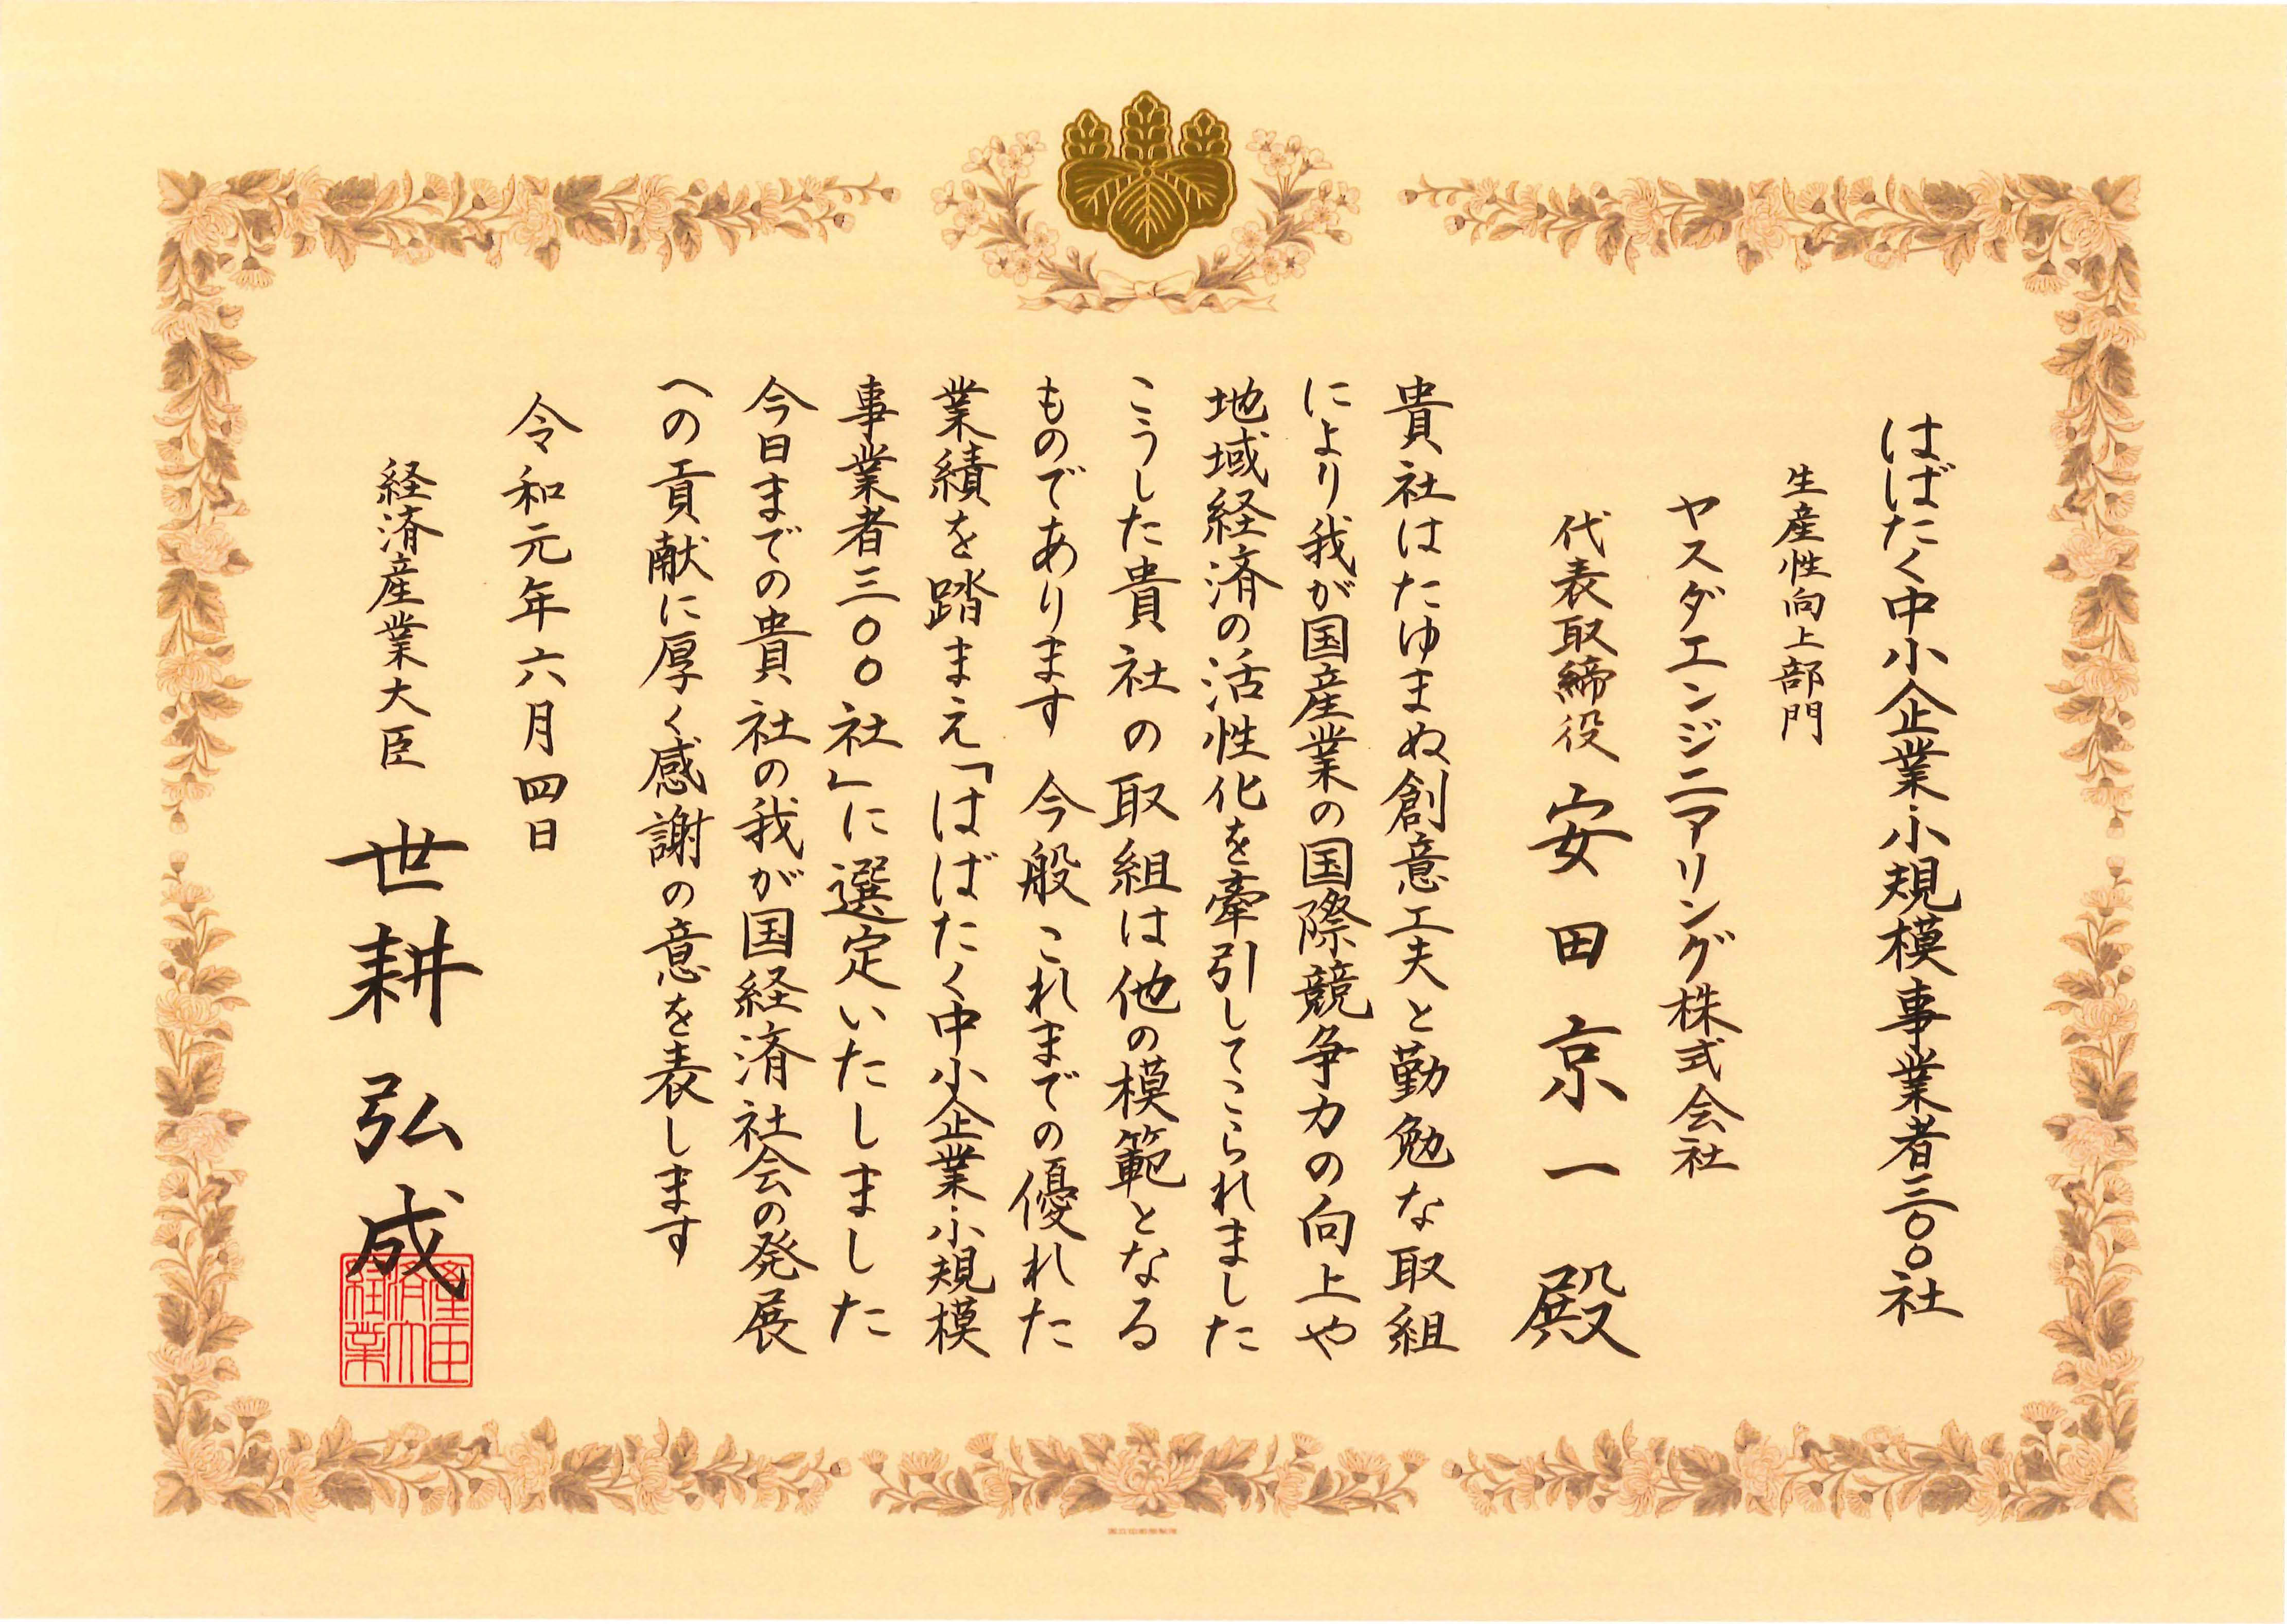 はばたく中小企業・小規模事業者三〇〇社
生産性向上部門
ヤスダエンジニアリング株式会社
代表取締役 安田京一 殿
貴社はたゆまぬ創意工夫と勤勉な取組
により我が国産業の国際競争力の向上や
地域経済の活性化を牽引してこられました
こうした貴社の取組は他の模範となる
ものであります 今般 これまでの優れた
業績を踏まえ「はばたく中小企業・小規模
事業者三〇〇社」に選定いたしました
今日までの貴社の我が国経済社会の発展
への貢献に厚く感謝の意を表します
令和元年六月四日
経済産業大臣 世耕弘成
経済産業大臣